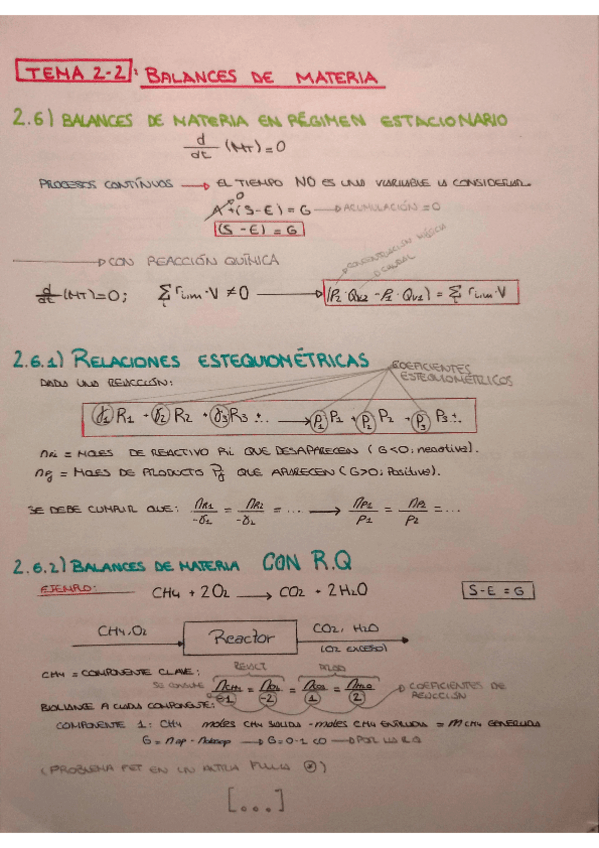 TEMA 2-2: BALANCES DE MATERIA
2.6) BALANCES DE MATERIA EN RÉGIMEN ESTACIONARIO
d/dt (MT) = 0
PROCESOS CONTÍNUOS → EL TIEMPO NO ES UNA VARIABLE A CONSIDERAR
A + (S - E) = G → ACUMULACIÓN = 0
0
(S - E) = G
CON REACCIÓN QUÍMICA
CONCENTRACIÓN MÁSICA
CAUDAL
d/dt (MT) = 0; Σ ri,m · V ≠ 0 → (ρ2 · Qv2 - ρ1 · Qv1) = Σ ri,m · V
2.6.1) RELACIONES ESTEQUIOMÉTRICAS
COEFICIENTES ESTEQUIOMÉTRICOS
DADA UNA REACCIÓN:
γ1 R1 + γ2 R2 + γ3 R3 ±.. → P1 P1 + P2 P2 + P3 P3 ±..
nRi = MOLES DE REACTIVO Ri QUE DESAPARECEN (G<0; negativo).
nPj = MOLES DE PRODUCTO Pj QUE APARECEN (G>0; Positivo).
SE DEBE CUMPLIR QUE: nR1/-γ1 = nR2/-γ2 = ... → nP1/P1 = nP2/P2 = ...
2.6.2) BALANCES DE MATERIA CON R.Q
EJEMPLO: CH4 + 2O2 → CO2 + 2H2O S - E = G
CH4, O2 Reactor CO2, H2O
(O2 EXCESO)
REACT PROD
CH4 = COMPONENTE CLAVE:
SE CONSUME nCH4/-1 = nO2/-2 = nCO2/1 = nH2O/2 → COEFICIENTES DE REACCIÓN
BALANCE A CADA COMPONENTE:
COMPONENTE 1: CH4 moles CH4 SALIDA - moles CH4 ENTRADA = M CH4 GENERADA
G = nap - ndesap → G = 0 - 1 → POR LA R.Q
(PROBLEMA EN LA )
[...]